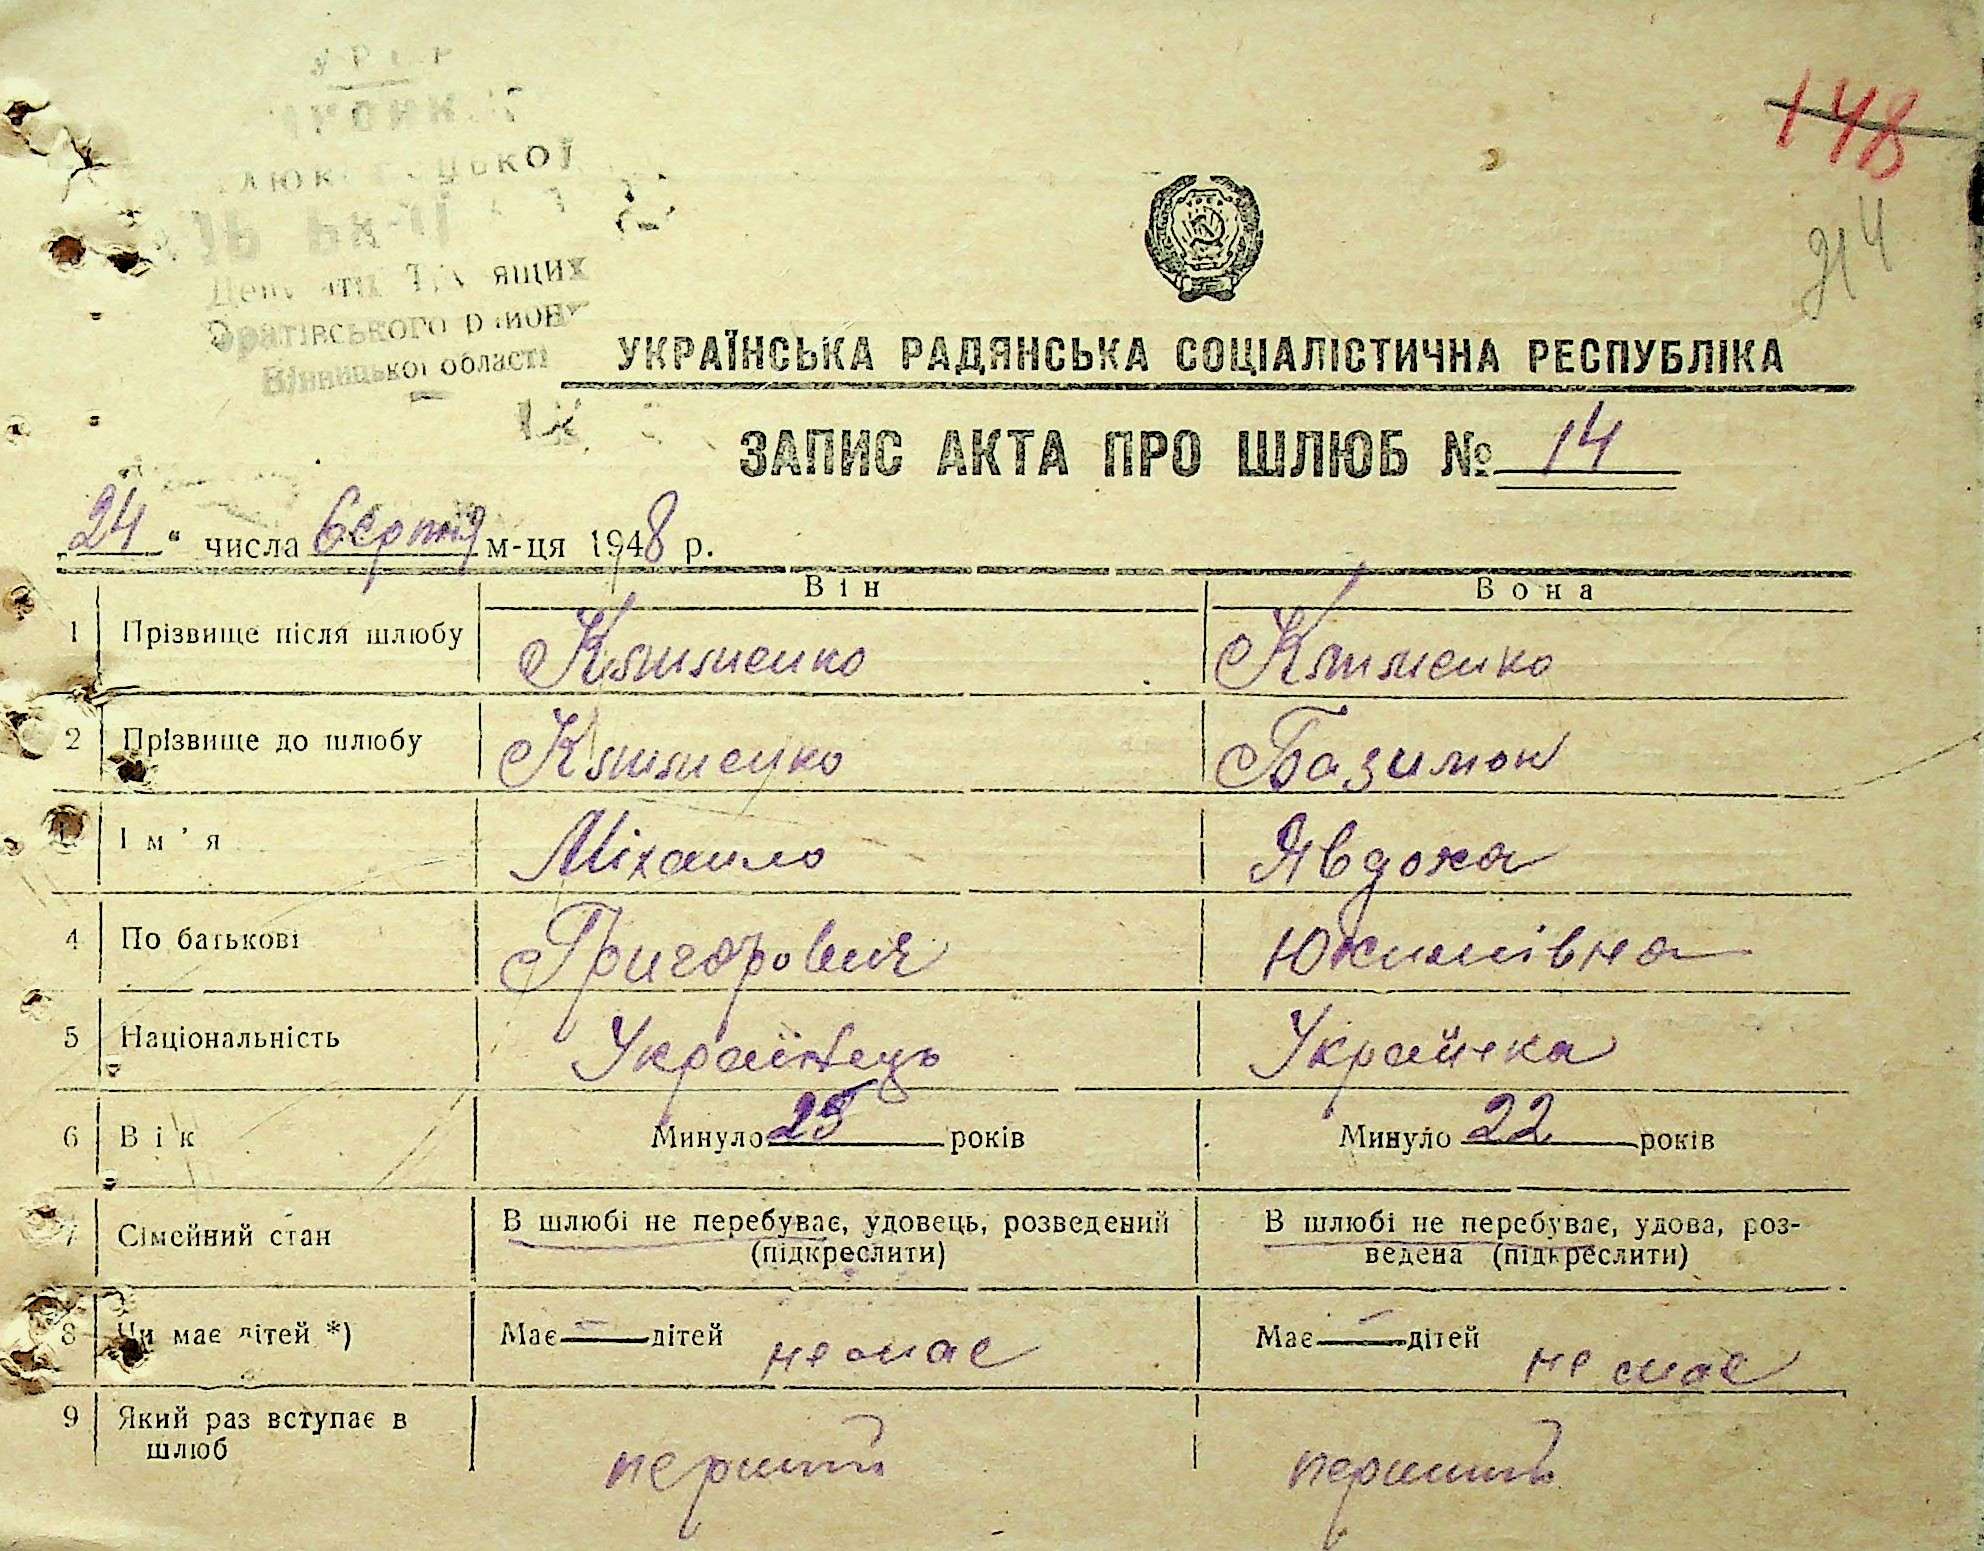 148
214
ящих
Вінницької області
УКРАЇНСЬКА РАДЯНСЬКА СОЦІАЛІСТИЧНА РЕСПУБЛІКА
ЗАПИС АКТА ПРО ШЛЮБ № 14
„24“ числа Серпня м-ця 1948 р.
Він Вона
1 Прізвище після шлюбу
2 Прізвище до шлюбу Базимок
Ім'я Міхаило Явдоха
4 По батькові Григорович Юхимівна
5 Національність Українець Українка
6 Вік Минуло 25 років Минуло 22 років
7 Сімейний стан В шлюбі не перебуває, удовець, розведений В шлюбі не перебуває, удова, роз-
(підкреслити) ведена (підкреслити)
8 Чи має дітей *) Має — дітей не має Має — дітей не має
9 Який раз вступає в
шлюб перший перший